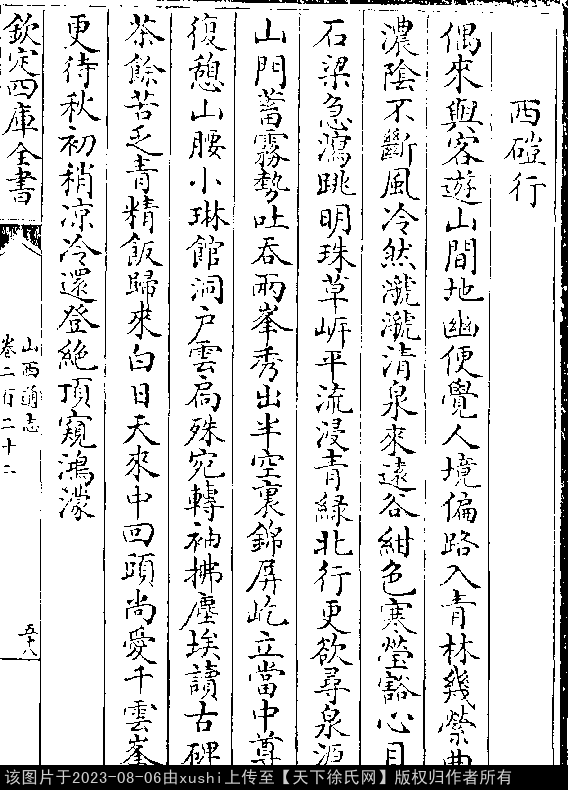 西磑行
偶來與客遊山間地幽便覺人境偏路入青林幾縈曲
濃陰不斷風冷然瀧瀧清泉來遠谷紺色寒瑩豁心目
石梁急瀉跳明珠草㟁平流浸青綠北行更欲尋泉源
山門蓄霧勢吐吞兩峯秀出半空裏錦屏屹立當中尊
復憩山腰小琳館洞户雲扃殊宛轉袖拂塵埃讀古碑
茶餘苦乏青精飯歸來白日天來中回頭尚愛千雲峯
更待秋初稍凉冷還登絶頂窺鴻濛
欽定四庫全書
山西通志
卷二百二十二
五十八
该图片于2023-08-06由xushi上传至【天下徐氏网】版权归作者所有